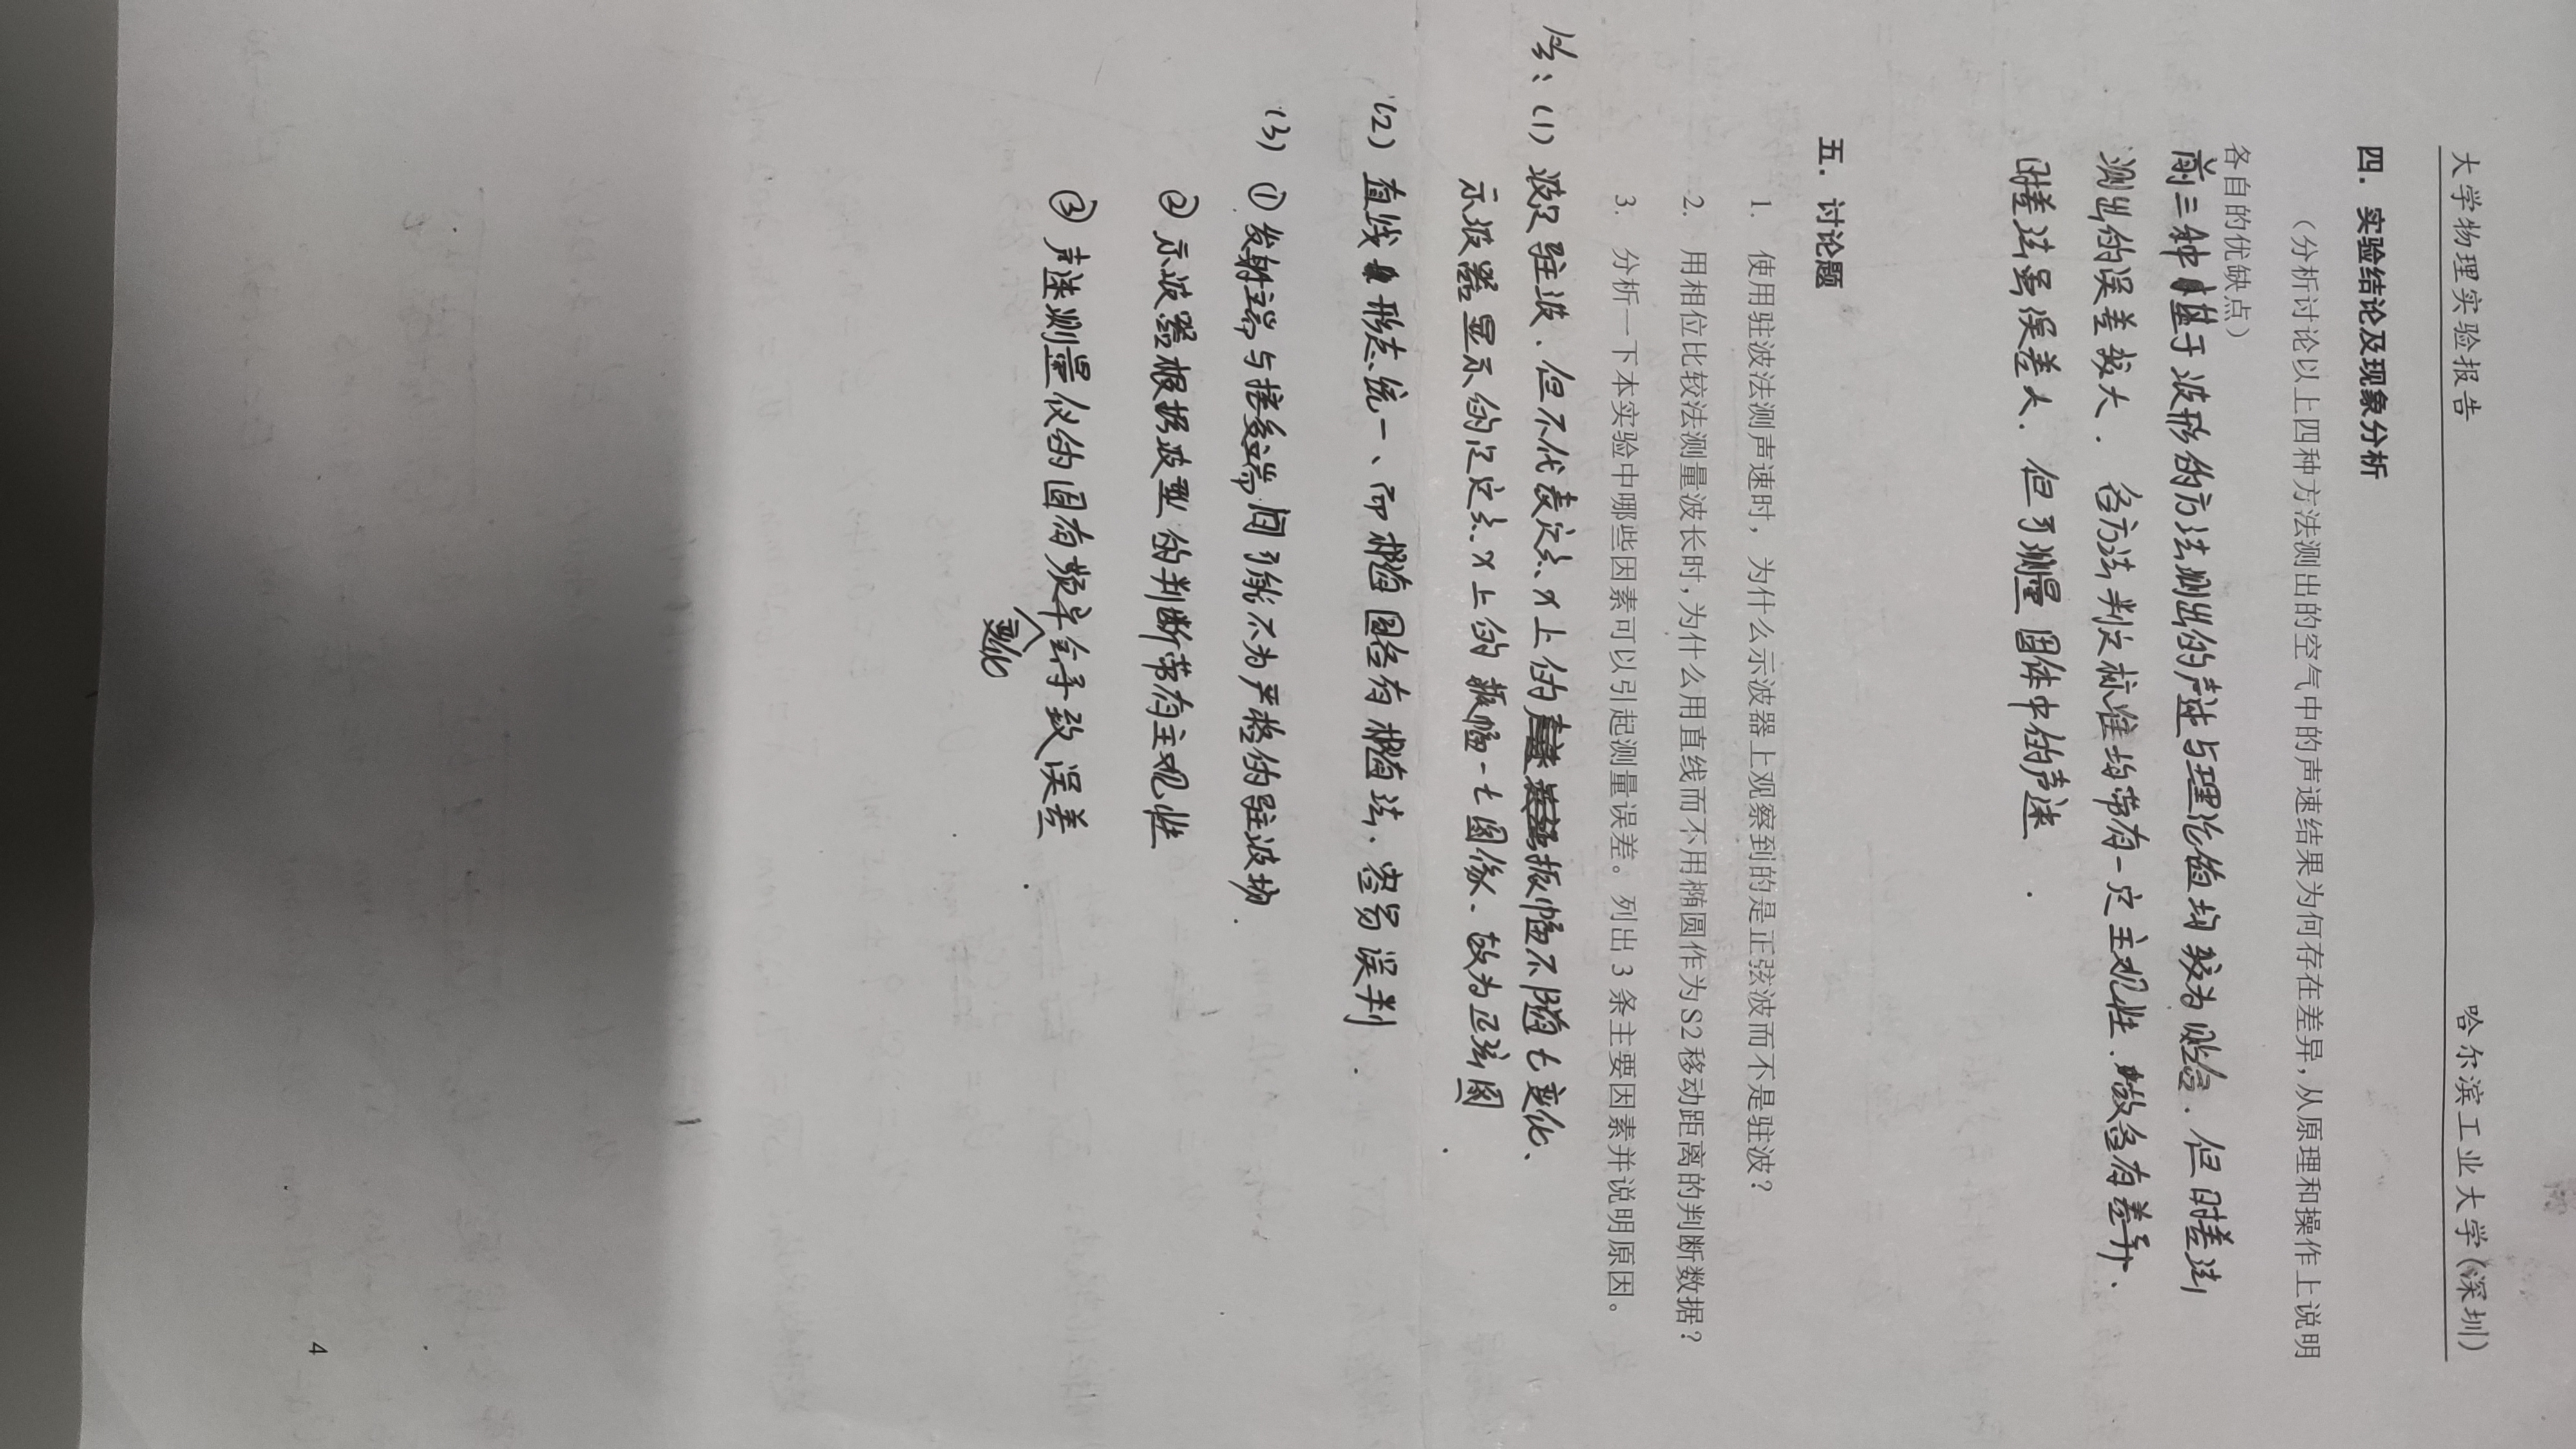 大学物理实验报告 哈尔滨工业大学(深圳)
四. 实验结论及现象分析
（分析讨论以上四种方法测出的空气中的声速结果为何存在差异，从原理和操作上说明
各自的优缺点）
前三种基于波形的方法测出的声速与理论值均较为贴合. 但时差法
测出的误差较大. 各方法判定标准均带有一定主观性、故各有差异.
时差法虽误差大. 但可测量固体中的声速.
五. 讨论题
1. 使用驻波法测声速时，为什么示波器上观察到的是正弦波而不是驻波？
2. 用相位比较法测量波长时，为什么用直线而不用椭圆作为S2移动距离的判断数据？
3. 分析一下本实验中哪些因素可以引起测量误差。列出3条主要因素并说明原因。
答: (1) 波是驻波. 但不代表定点x上的振幅不随t变化.
示波器显示的是定点x上的振幅-t图像. 故为正弦图.
(2) 直线形态统一、而椭圆各有椭法. 容易误判.
(3) ①发射端与接受端间可能不为严格的驻波场.
② 示波器根据波型的判断带有主观性
③ 声速测量仪的固有频率变化会导致误差.
4